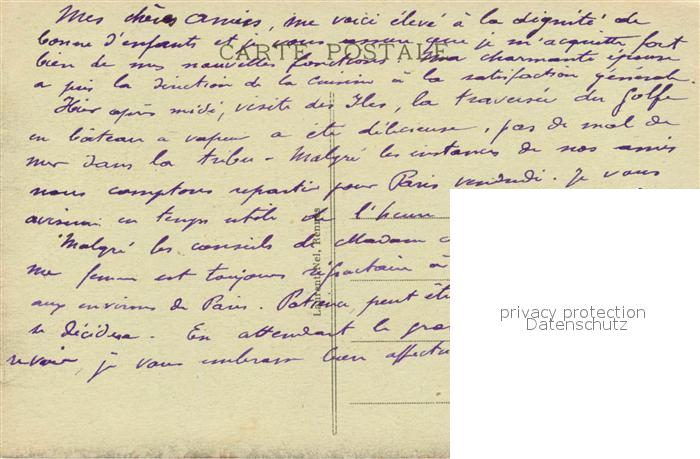 Mes chères amies, me voici élevé à la dignité de
bonne d'enfants et je vous assure que je m'acquitte fort
CARTE POSTALE
bien de mes nouvelles fonctions. Ma charmante épouse
a pris la direction de la cuisine à la satisfaction générale.
Hier après midi, visite des Iles, la traversée du Golfe
en bâteau à vapeur a été délicieuse, pas de mal de
mer dans la tribu - Malgré les instances de nos amies
nous comptons repartir pour Paris vendredi. Je vous
aviserai en temps utile de l'heure
Malgré les conseils de Madame
ma femme est toujours réfractaire à
aux environs de Paris. Patience, peut êt
se décidera. En attendant le
revoir, je vous embrasse bien affectu
Laurent-Nel, Rennes
privacy protection
Datenschutz